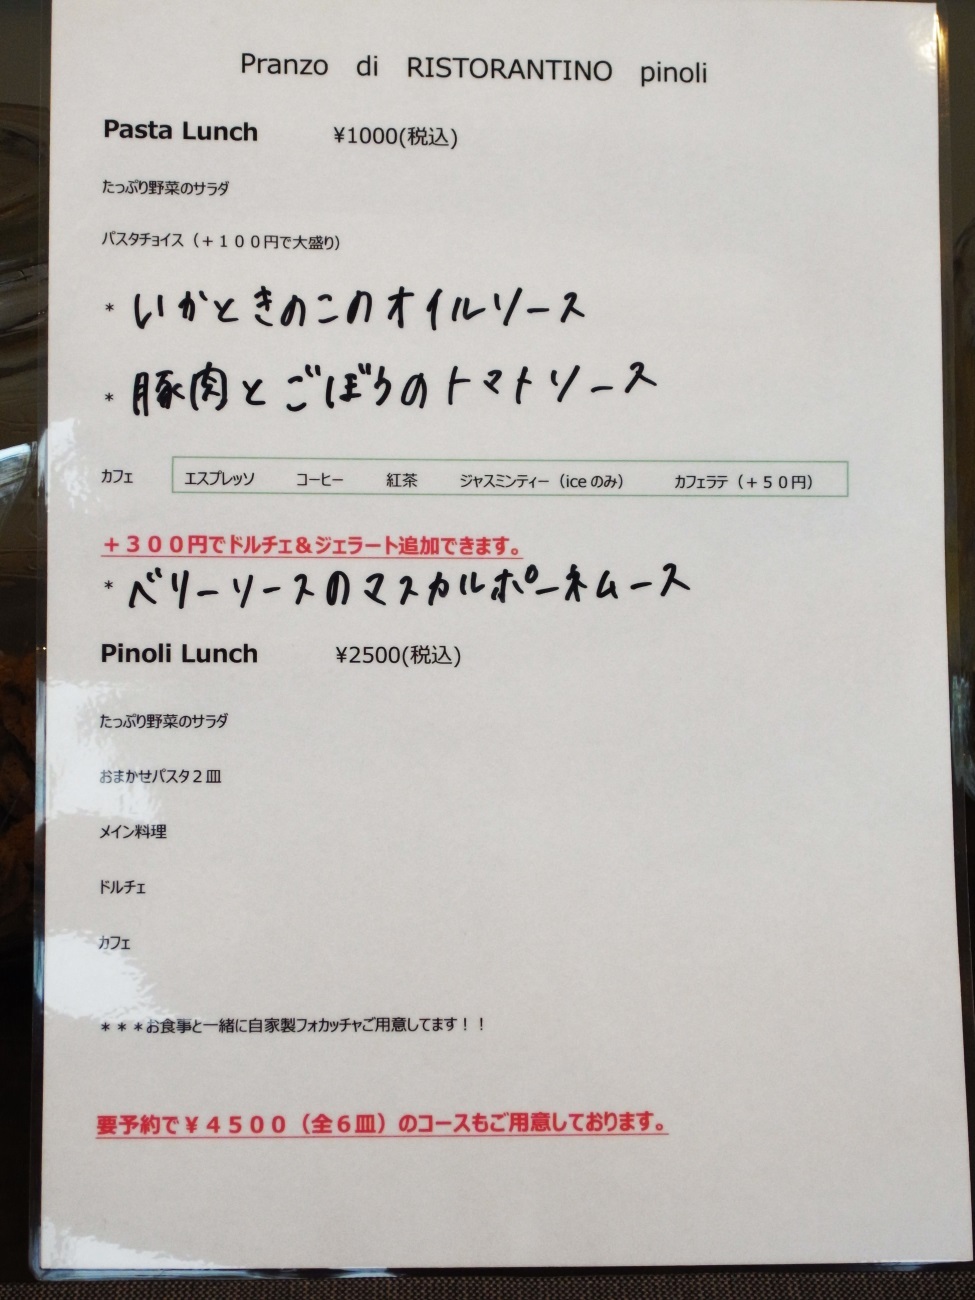 Pranzo di RISTORANTINO pinoli
Pasta Lunch ¥1000(税込)
たっぷり野菜のサラダ
パスタチョイス（＋１００円で大盛り）
* いかときのこのオイルソース
* 豚肉とごぼうのトマトソース
カフェ エスプレッソ コーヒー 紅茶 ジャスミンティー（iceのみ） カフェラテ（＋５０円）
＋３００円でドルチェ＆ジェラート追加できます。
* ベリーソースのマスカルポーネムース
Pinoli Lunch ¥2500(税込)
たっぷり野菜のサラダ
おまかせパスタ２皿
メイン料理
ドルチェ
カフェ
＊＊＊お食事と一緒に自家製フォカッチャご用意してます！！
要予約で￥４５００（全６皿）のコースもご用意しております。